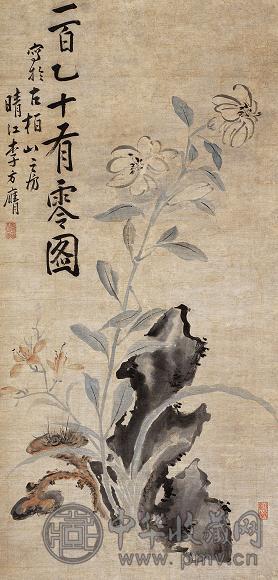 二百乙十有零图
寫於古柏山之房
晴江李方膺
中华收藏网
www.pmv.cn